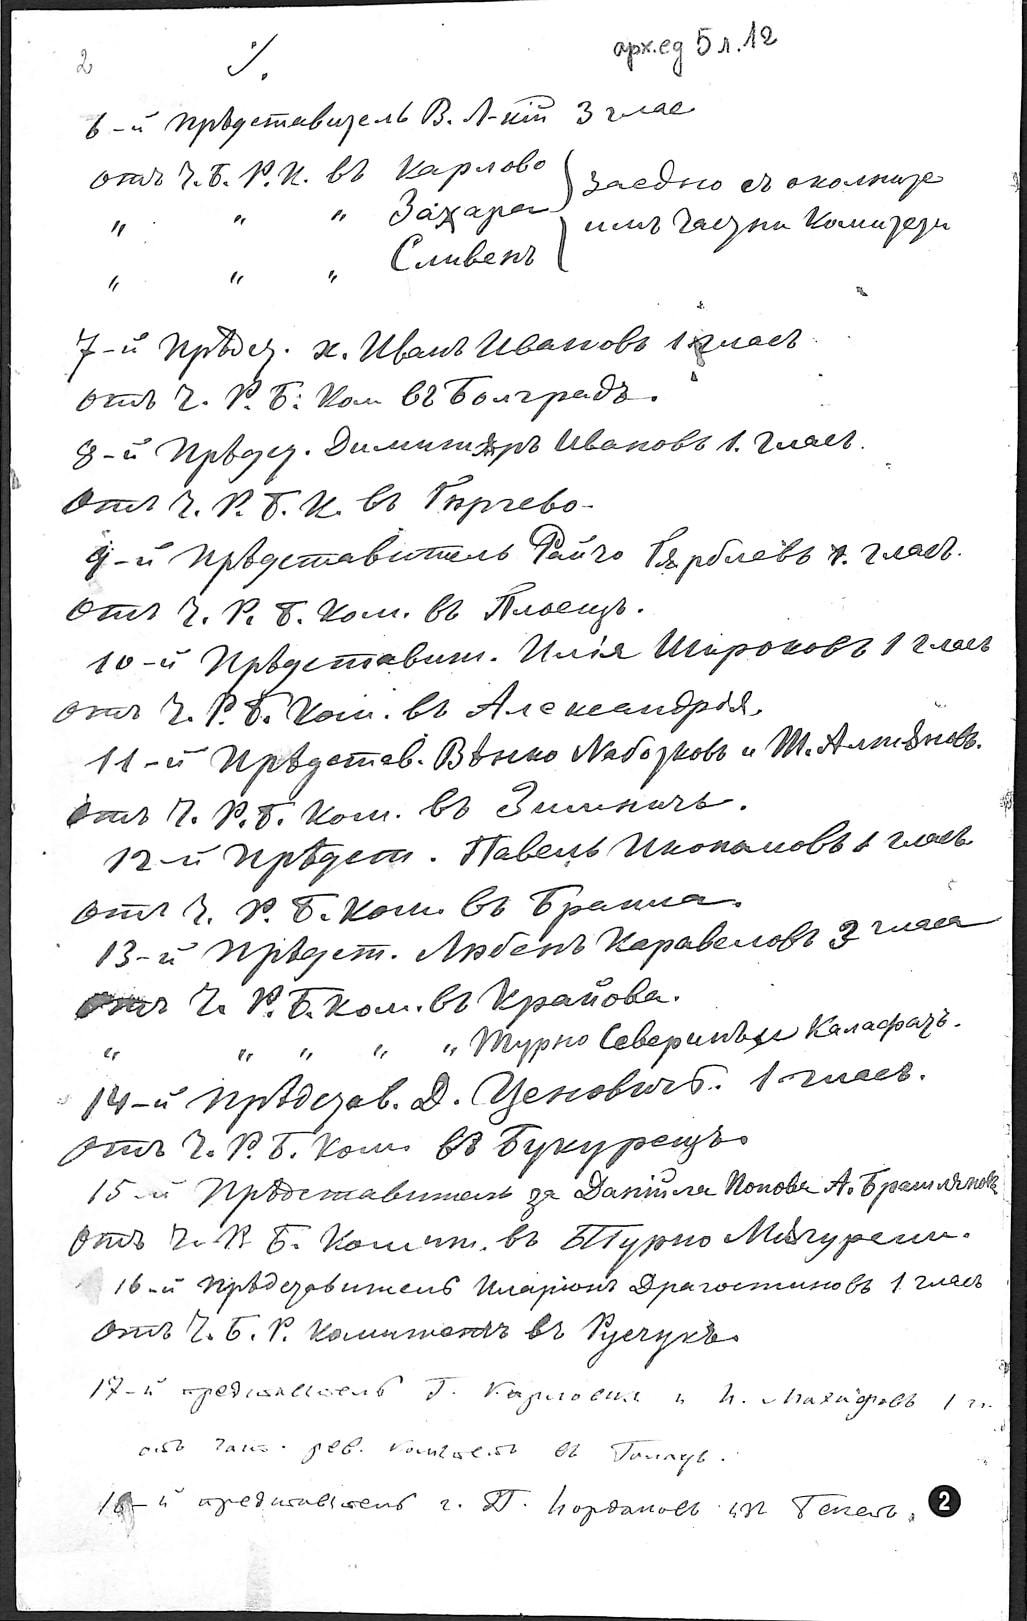 2
арх.ед 5 л.12
6-й Прѣдставитель В. Л-кій 3 глас
отъ Ч.Б.Р.К. въ Карлово
заедно съ околните
имъ Частни Комитети
" " " Захара
" " " Сливенъ
7-й Прѣдст. х. Иванъ Ивановъ 1 гласъ
отъ Ч. Р. Б. Ком въ Болградъ.
8-й Прѣдст. Димитъръ Ивановъ 1. гласъ.
отъ Ч. Р. Б. К. въ Гюргево.
9-й Прѣдставитель Райчо Гърблевъ 1. гласъ.
отъ Ч. Р. Б. Ком. въ Плоещъ.
10-й Прѣдставит. Илія Широковъ 1 гласъ
отъ Ч. Р. Б. Ком. въ Александрія.
11-й Прѣдстав. Вѣнко Наботковъ и Т. Алтѣновъ.
отъ Ч. Р. Б. Ком. въ Зимничъ.
12-й Прѣдст. Павелъ Икономовъ 1 гласъ
отъ Ч. Р. Б. Ком. въ Браила.
13-й Прѣдст. Любенъ Каравеловъ 3 гласа
отъ Ч. Р. Б. Ком. въ Крайова.
" " " " " Турно Северинъ и Калафатъ.
14-й Прѣдстав. Д. Ценовичъ. 1 гласъ.
отъ Ч. Р. Б. Ком. въ Букурещъ.
15-й Прѣдставитель за Даніила Попова А. Брашлянова
отъ Ч. Р. Б. Комит. въ Турно Мъгурели.
16-й Прѣдставитель Иларіонъ Драгостиновъ 1 гласъ
отъ Ч. Б. Р. Комитетъ въ Русчукъ.
17-й представитель Г. и 1 г.
отъ рев. комитетъ въ Галацъ.
18-й представитель г. П. Іордановъ Бекетъ.
2